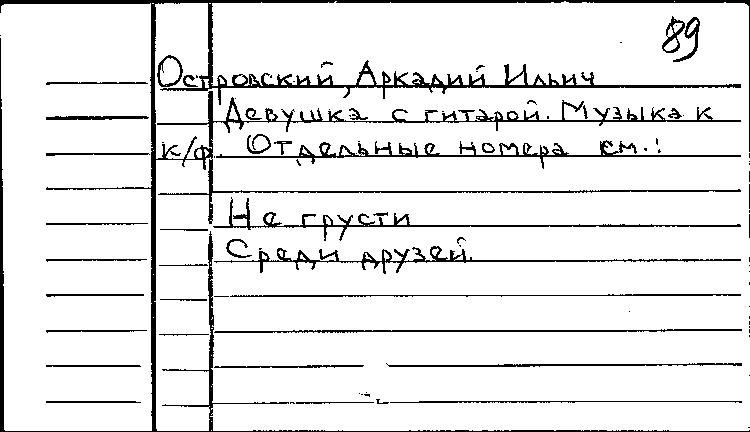 89
Островский, Аркадий Ильич
Девушка с гитарой. Музыка к
к/ф. Отдельные номера см.:
Не грусти
Среди друзей.